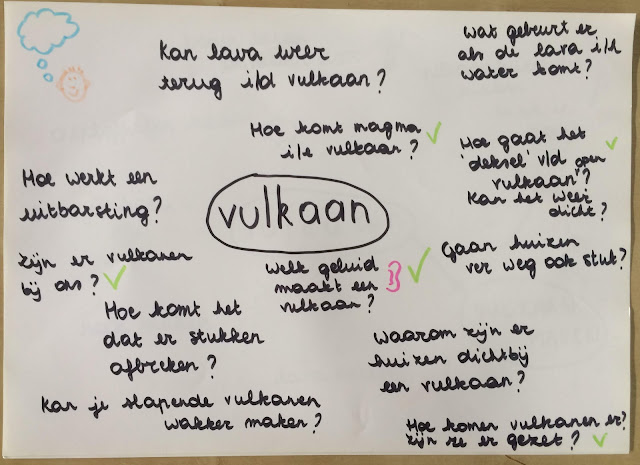 Kan lava weer
terug i/d vulkaan?
Wat gebeurt er
als de lava i/h
water komt?
Hoe komt magma
i/e vulkaan?
Hoe gaat het
'deksel' v/d open
vulkaan?
Kan het weer
dicht?
Hoe werkt een
uitbarsting?
vulkaan
zijn er vulkanen
bij ons?
Welk geluid
maakt een
vulkaan?
Gaan huizen
ver weg ook stuk?
Hoe komt het
dat er stukken
afbreken?
waarom zijn er
huizen dichtbij
een vulkaan?
Kan je slapende vulkanen
wakker maken?
Hoe komen vulkanen er?
zijn ze er gezet?